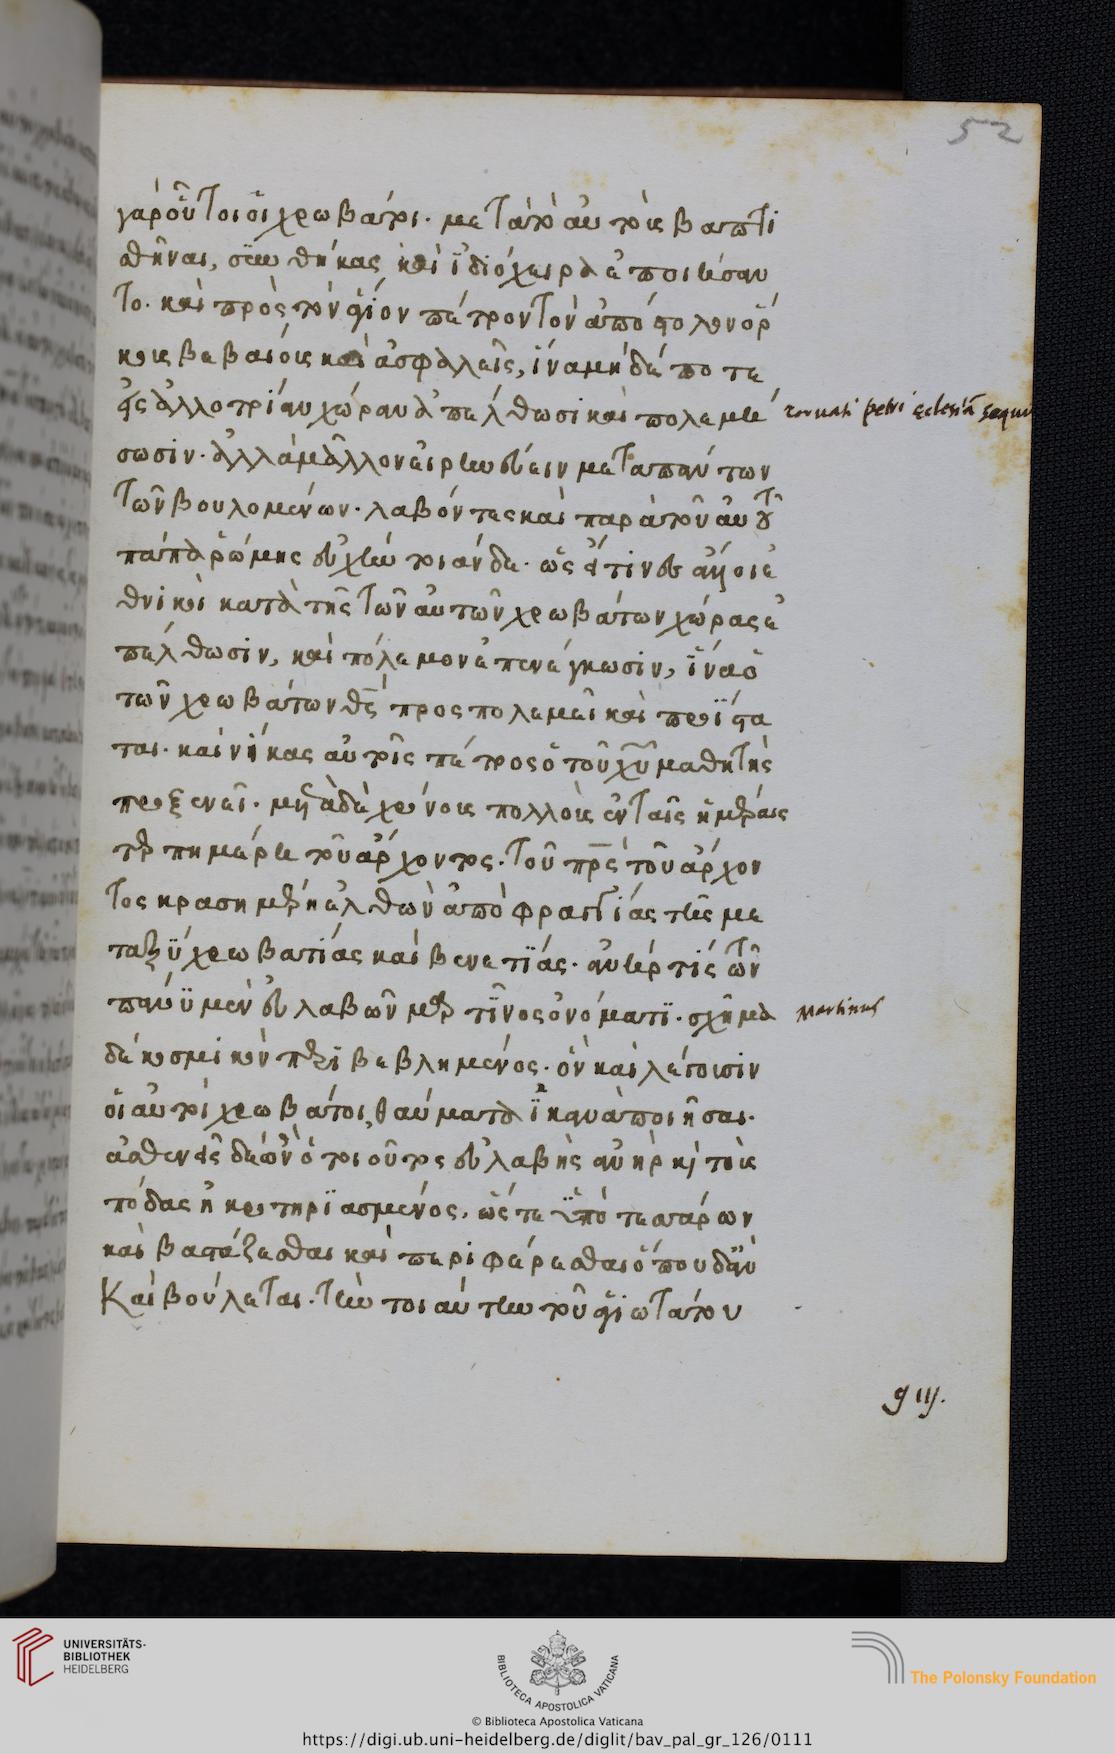 52
γὰρ οὗτοι οἱ χρωβάτοι. μετὰ τὸ αὐτοὺς βαπτι
σθῆναι, συνθήκας καὶ ἰδιόχειρα ἐποιήσαν
το. καὶ πρὸς τὸν ἅγιον πέτρον τὸν ἀπόστολον ὅρ
κους βεβαίους καὶ ἀσφαλεῖς, ἵνα μηδέποτε
εἰς ἀλλοτρίαν χώραν ἀπέλθωσι καὶ πολεμή
σωσιν. ἀλλὰ μᾶλλον εἰρηνεύειν μετὰ πάντων
τῶν βουλομένων. λαβόντες καὶ παρὰ τοῦ αὐτοῦ
πάπα ῥώμης εὐχὴν τοιάνδε. ὡς εἴ τινες ἄλλοι ἐ
θνικοὶ κατὰ τῆς τῶν αὐτῶν χρωβάτων χώρας ἐ
πέλθωσιν, καὶ πόλεμον ἐπενέγκωσιν, ἵνα ὁ
τῶν χρωβάτων θς προπολεμεῖ καὶ προΐστα
ται. καὶ νίκας αὐτοῖς πέτρος ὁ τοῦ χυ μαθητὴς
προξενεῖ. μετὰ δὲ χρόνους πολλοὺς ἐν ταῖς ἡμέραις
τερπημέρη τοῦ ἄρχοντος. τοῦ πρς τοῦ ἄρχον
τος κρασημέρη ἐλθὼν ἀπὸ φραγγίας τῆς με
ταξὺ χρωβατίας καὶ βενετίας. ἀνήρ τις τῶν
πάνυ μὲν εὐλαβῶν μαρτῖνος ὀνόματι. σχῆμα
δὲ κοσμικὸν περιβεβλημένος. ὃν καὶ λέγουσιν
οἱ αὐτοὶ χρωβάτοι θαύματα ἱκανὰ ποιῆσαι.
ἀσθενὴς δὲ ὢν ὁ τοιοῦτος εὐλαβὴς ἀνὴρ καὶ τοὺς
πόδας ἠκρωτηριασμένος, ὥστε ὑπὸ τεσσάρων
καὶ βαστάζεσθαι καὶ περιφέρεσθαι ὅπου δἂν
Καὶ βούλεται. τὴν τοιαύτην τοῦ ἁγιωτάτου
cornati petri eclesiã sequu
Martinus
g iij.
UNIVERSITÄTS-
BIBLIOTHEK
HEIDELBERG
BIBLIOTECA APOSTOLICA VATICANA
The Polonsky Foundation
© Biblioteca Apostolica Vaticana
https://digi.ub.uni-heidelberg.de/diglit/bav_pal_gr_126/0111